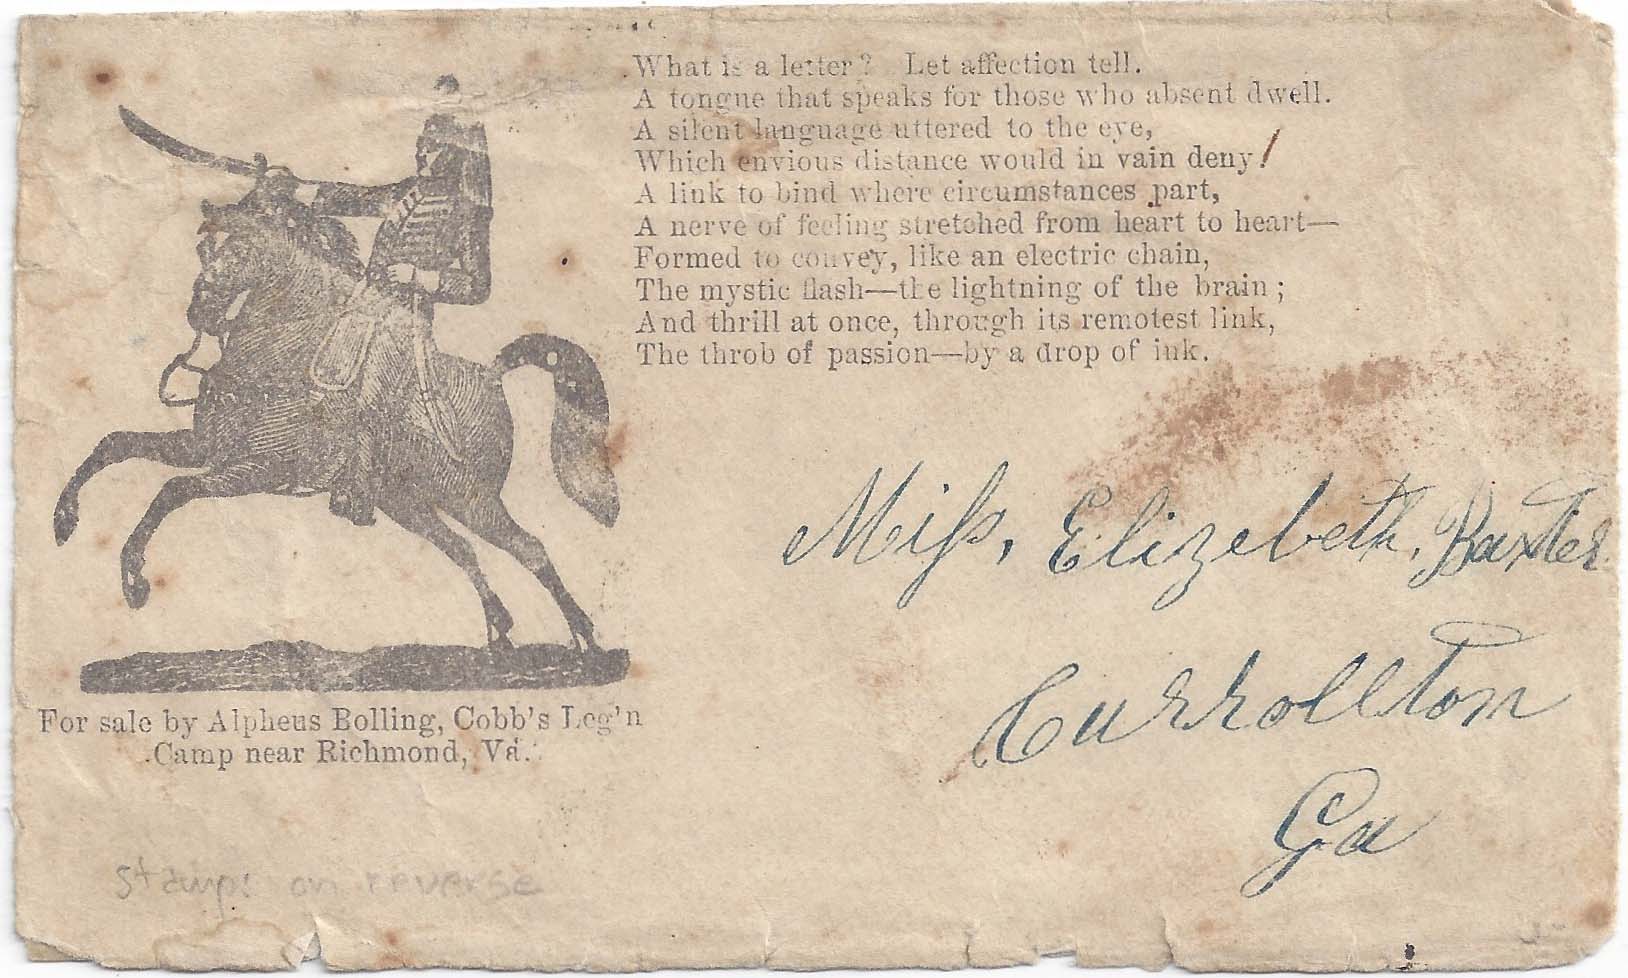 What is a letter? Let affection tell.
A tongue that speaks for those who absent dwell.
A silent language uttered to the eye,
Which envious distance would in vain deny!
A link to bind where circumstances part,
A nerve of feeling stretched from heart to heart—
Formed to convey, like an electric chain,
The mystic flash—the lightning of the brain;
And thrill at once, through its remotest link,
The throb of passion—by a drop of ink.
Miſs, Elizabeth, Baxter
Carrollton
Ga
For sale by Alpheus Bolling, Cobb's Leg'n
Camp near Richmond, Va.
stamps on reverse